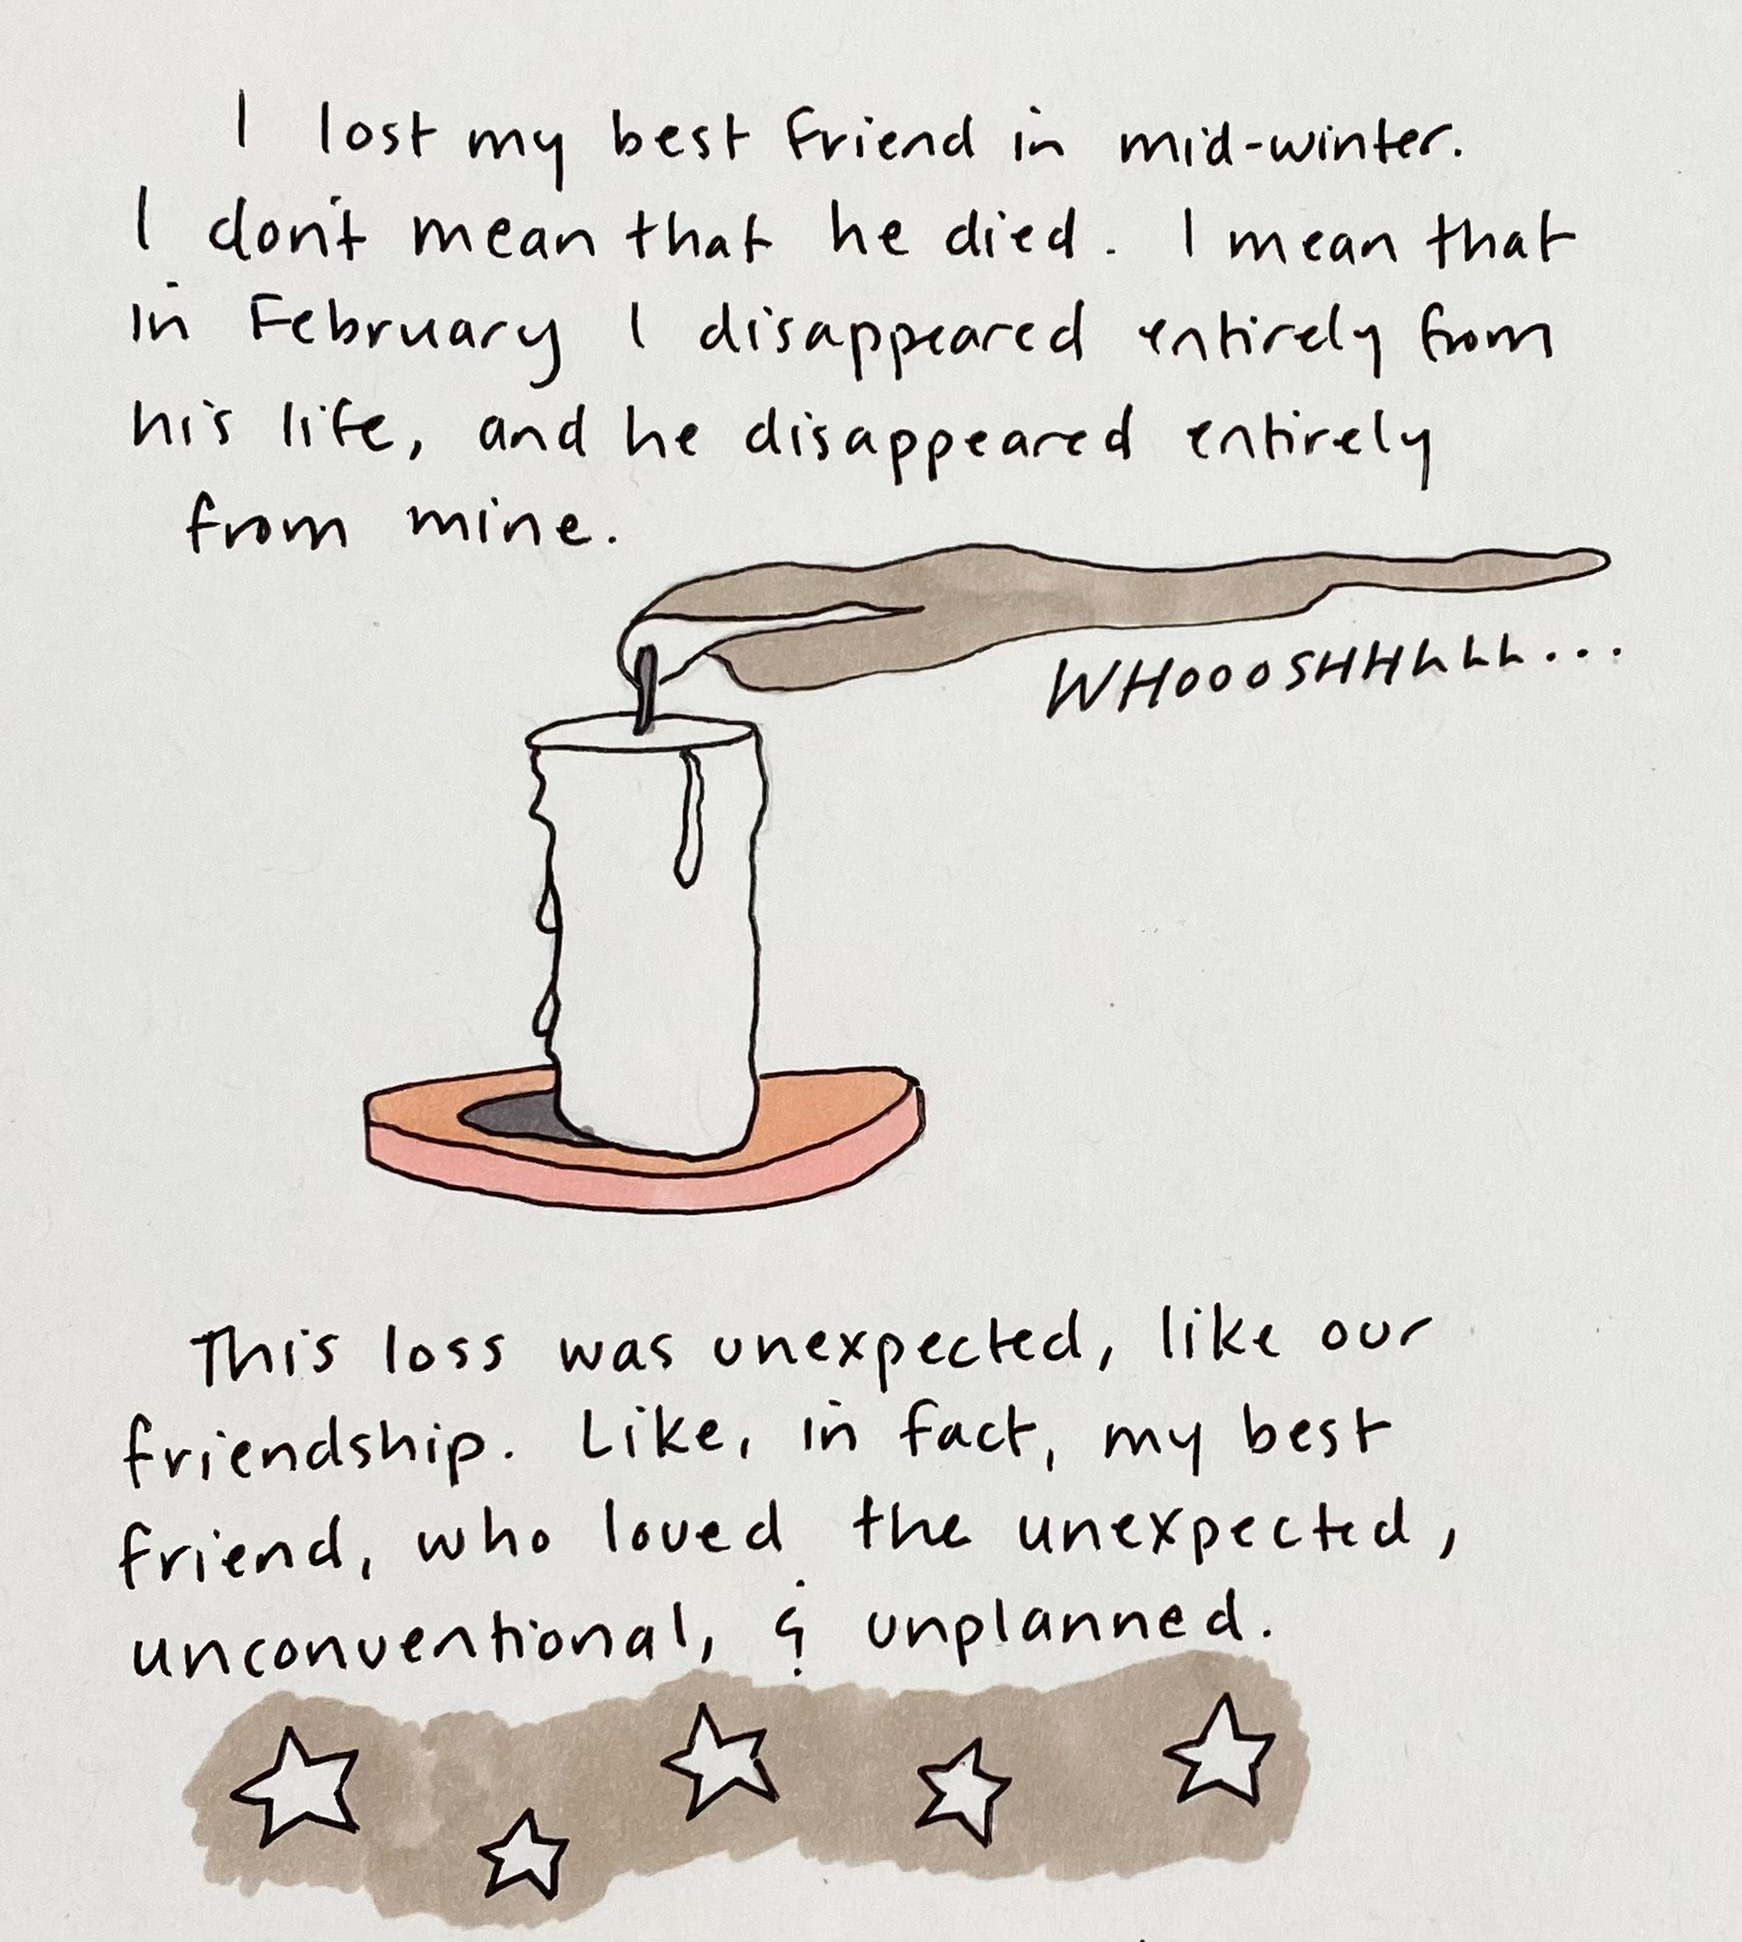 I lost my best friend in mid-winter.
I don't mean that he died. I mean that
in February I disappeared entirely from
his life, and he disappeared entirely
from mine.
WHOOOSHHHHHH...
This loss was unexpected, like our
friendship. Like, in fact, my best
friend, who loved the unexpected,
unconventional, & unplanned.